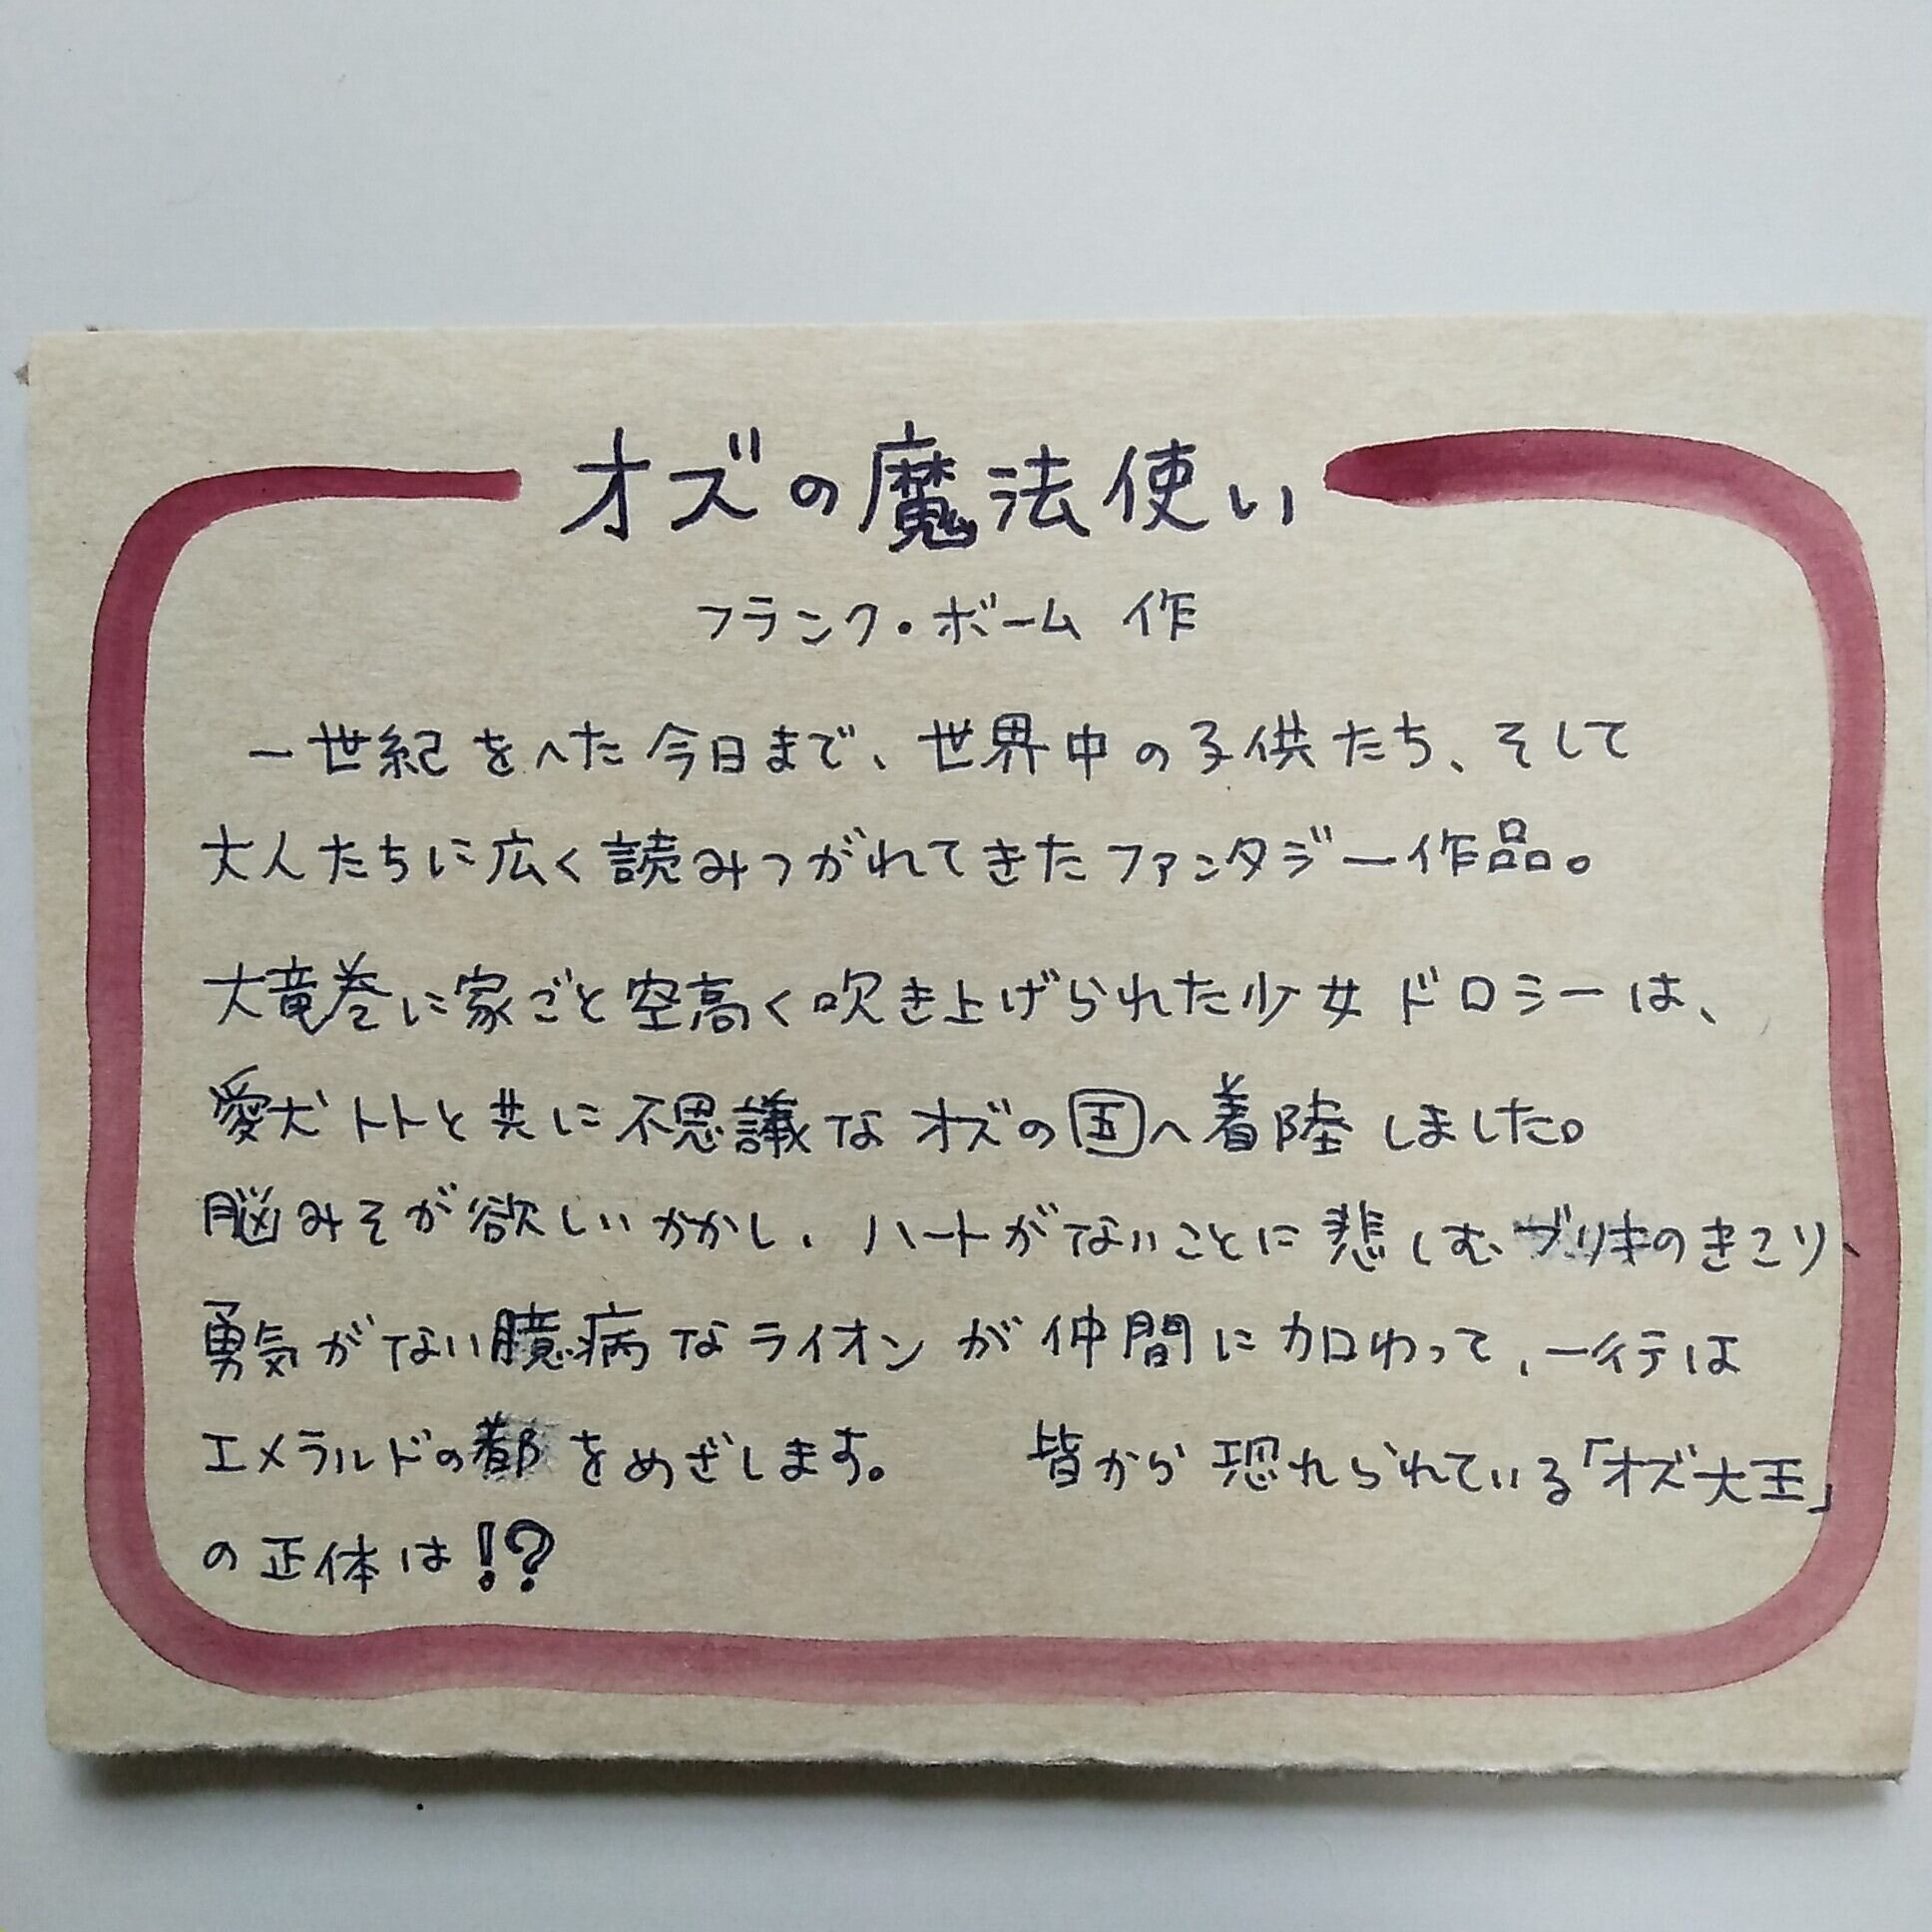 オズの魔法使い
フランク・ボーム 作
一世紀をへた今日まで、世界中の子供たち、そして
大人たちに広く読みつがれてきたファンタジー作品。
大竜巻に家ごと空高く吹き上げられた少女ドロシーは、
愛犬トトと共に不思議なオズの国へ着陸しました。
脳みそが欲しいかかし、ハートがないことに悲しむ、ブリキのきこり、
勇気がない臆病なライオンが仲間に加わって、一行は
エメラルドの都をめざします。 皆から恐れられている「オズ大王」
の正体は!?